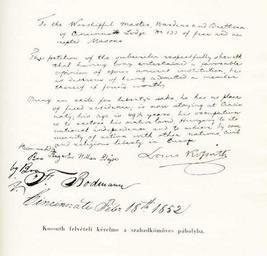 To the Worshipful Master, Wardens and Brethren
of Cincinnati Lodge No 133 of free and ac-
cepted Masons
The petition of the subscriber respectfully showeth
that having long entertained a favorable
opinion of your ancient institution, he
is desirous of being admitted a member
thereof if found worthy
Being an exile for liberty's sake, he has no place
of fixed residence, is now staying at Cincin
nati; his age is 49½ years, his occupation
is to restore his native land, Hungary to its
national independence, and to achieve by com
munity of action with other nations, civil
and religious liberty in Europe.
Louis Kossuth
by Bro
F. Bodmann
Cincinnati Febr 18th 1852
Kossuth felvételi kérelme a szabadkőműves páholyba.